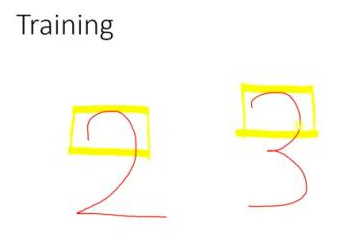 Training
2 3